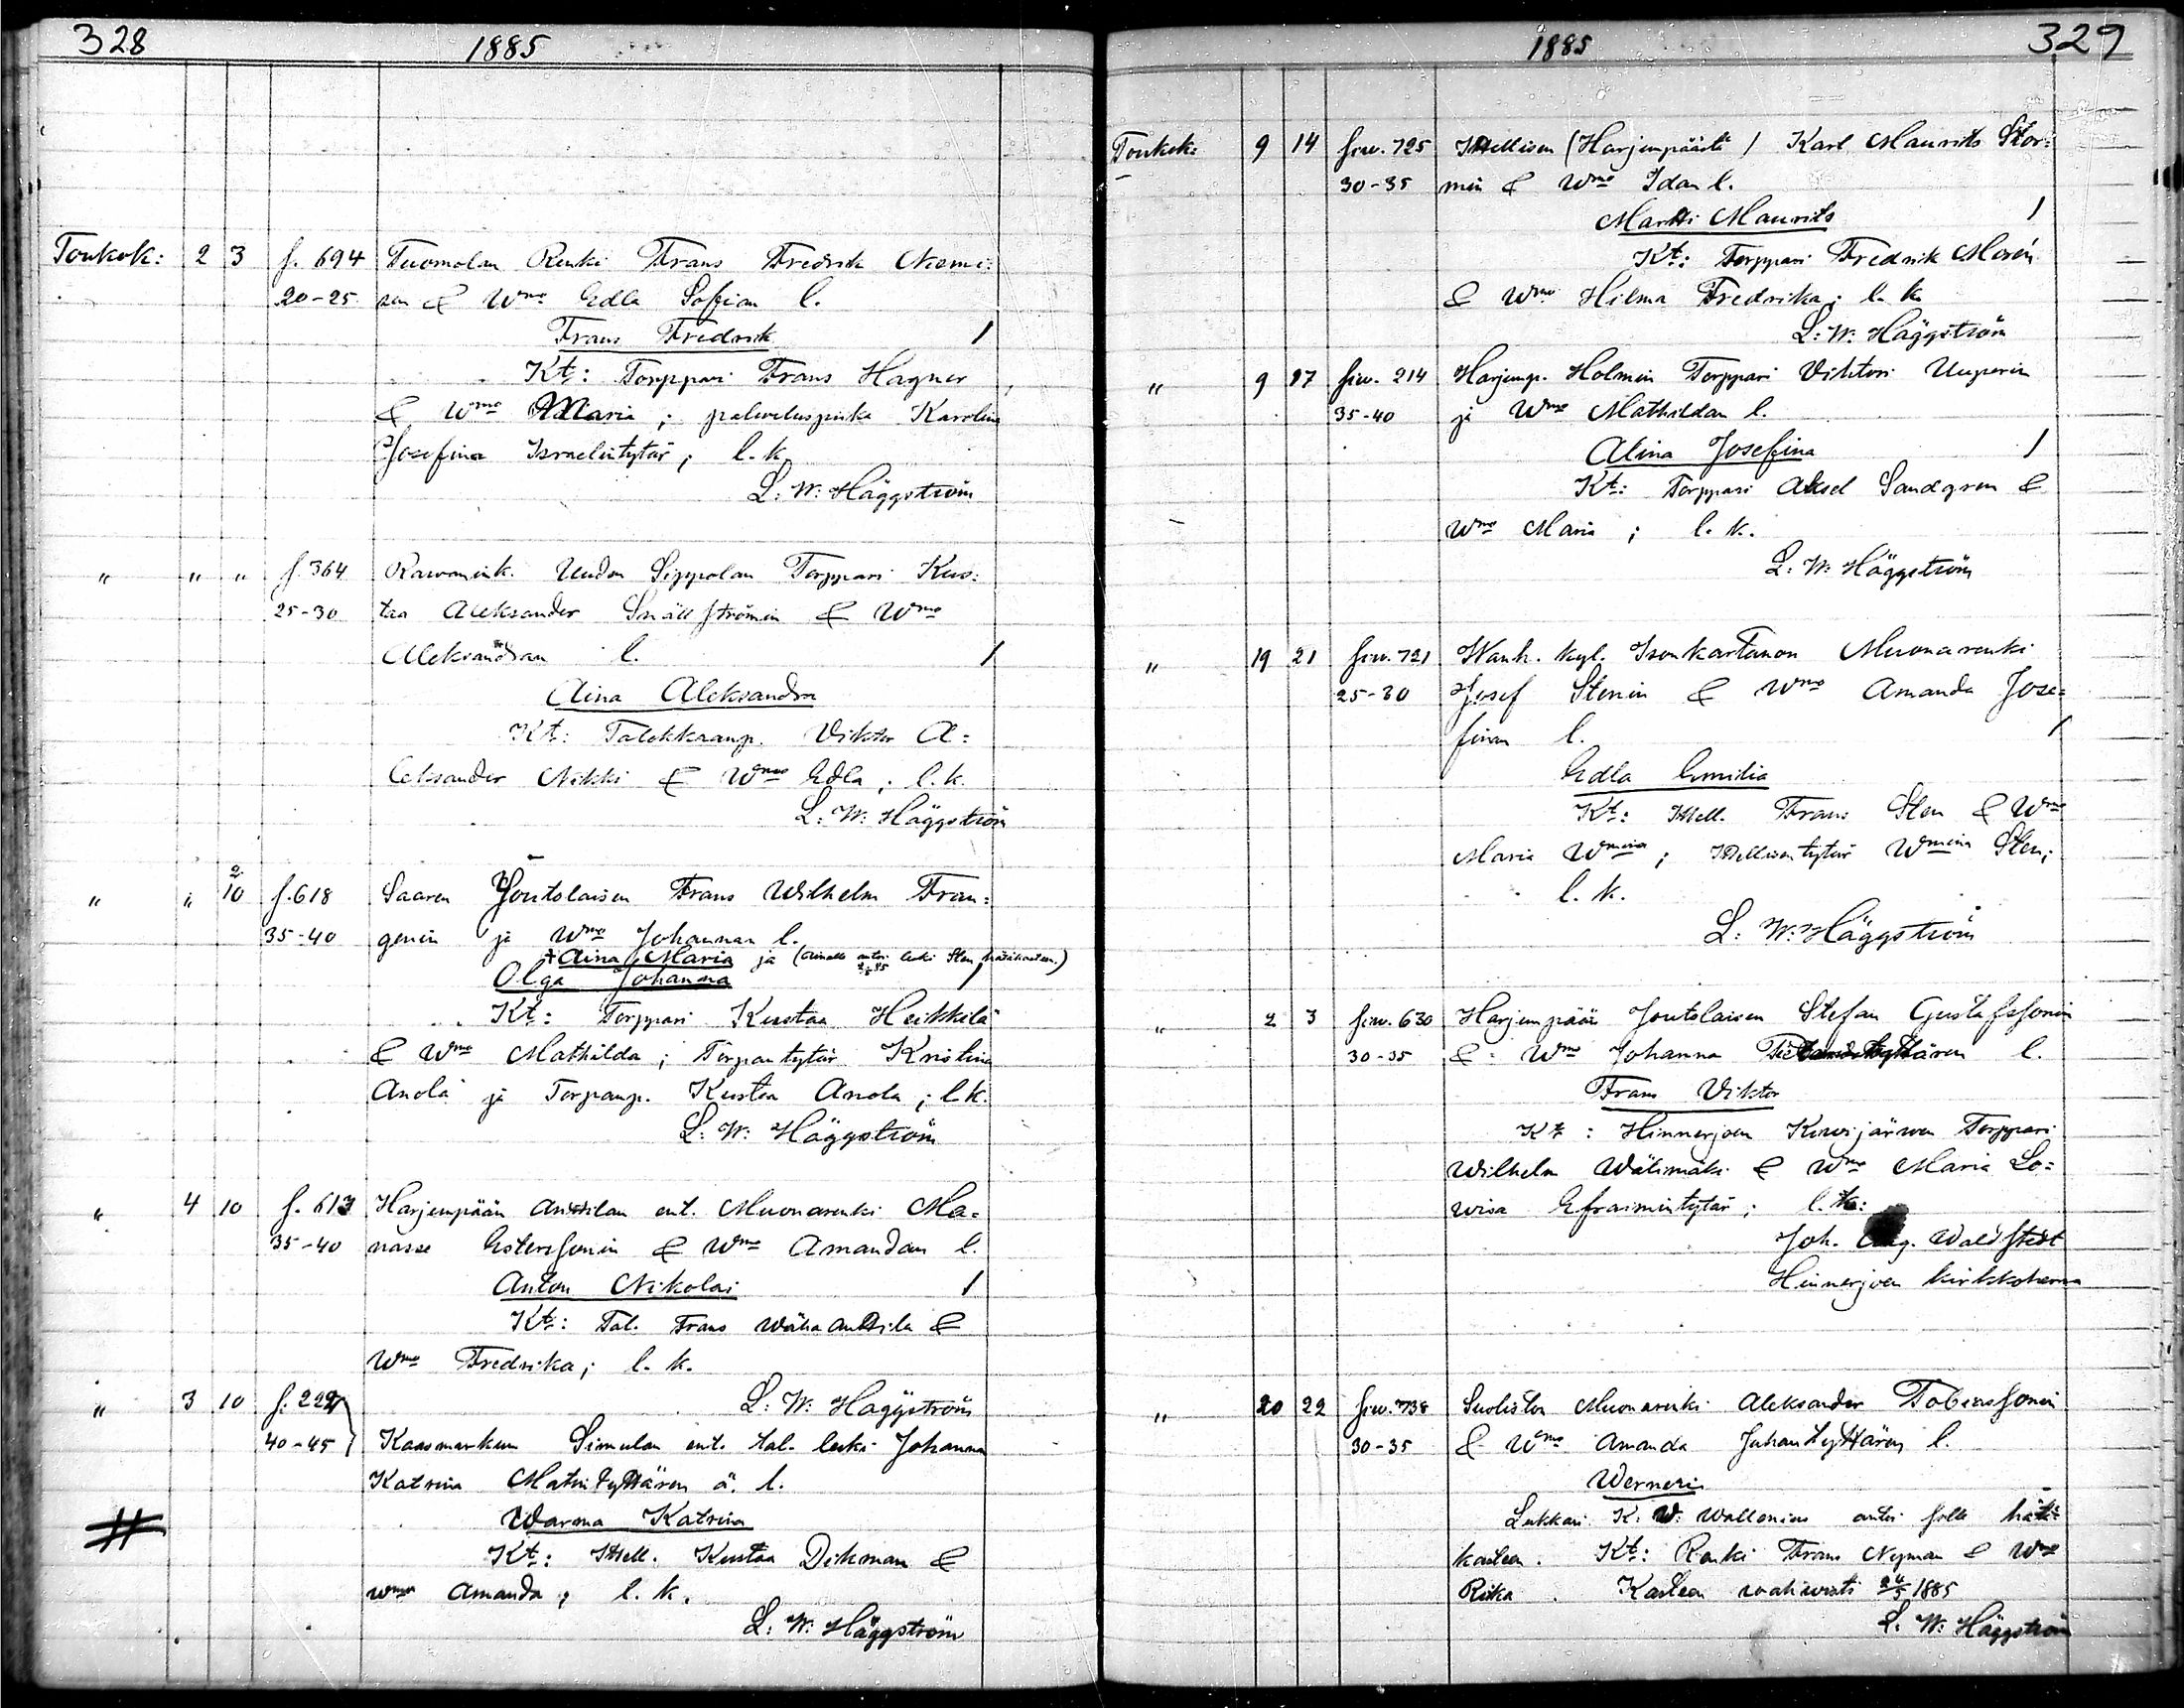 328
1885
Toukok: 2 3 f. 694 Tuomolan Renki Frans Fredrik Niemi:
20-25 sen & Wmo Edla Sofian l.
Frans Fredrik /
Kt: Torppari Frans Hagner
& Wmo Maria ; palveluspiika Karolina
Josefina Israelintytär ; l. k.
L: W: Häggström
" " " f. 364 Rawanink. Uudon Sippolan Torppari Kus:
25-30 taa Aleksander Snällströmin & Wmo
Aleksandran l. /
Aina Aleksandra
Kt: Talokkaanp. Viktor A:
leksander Nikki & Wmo Edla ; l. k.
L: W: Häggström
2
" " 10 f. 618 Saaren Joutolaisen Frans Wilhelm Fran:
35-40 genin ja Wmo Johannan l.
+ Aina Maria ja ( antoi leski Sten hätäkasteen.)
Olga Johanna /
Kt: Torppari Kustaa Heikkilä
& Wmo Mathilda ; Torpantytär Kristina
Anola ja Torpanp. Kustaa Anola ; l. k.
L: W: Häggström
" 4 10 f. 613 Harjenpään Anttilan ent. Muonarenki Ma=
35-40 nasse Estersonin & Wmo Amandan l.
Anton Nikolai /
Kt: Tal. Frans Wäha Anttila &
Wmo Fredrika ; l. k.
L: W: Häggström
" 3 10 f. 222
40-45 Kaasmarkun Simulan ent. tal. leski Johanna
Katrina Matintyttären ä. l.
# Warma Katrina
Kt: Itsell. Kustaa Dikman &
Wmo Amanda ; l. k.
L: W: Häggström
1885
329
Toukok: 9 14 siw. 725 Itsellisen (Harjenpäästä) Karl Maurits Stor:
30-35 min & Wmo Idan l.
Martti Maurits /
Kt: Torppari Fredrik Morén
& Wmo Hilma Fredrika ; l. k.
L: W: Häggström
" 9 17 siw. 214 Harjenp. Holmin Torppari Vihtori Uuperin
35-40 ja Wmo Mathildan l.
Alina Josefina /
Kt: Torppari Aksel Sandgren &
Wmo Maria ; l. k.
L: W: Häggström
" 19 21 siw. 721 Wanh. kyl. Isonkartanon Muonarenki
25-30 Josef Stenin & Wmo Amanda Jose=
finan l. /
Edla Emilia
Kt: Itsell. Frans Sten & Wmo
Maria Wmina ; Itsellisentytär Wmina Sten ;
l. k.
L: W: Häggström
" 2 3 siw. 630 Harjenpään Joutolaisen Stefan Gustafssonin
30-35 & Wmo Johanna l.
Frans Viktor
Kt : Hinnerjoen Korwijärwen Torppari
Wilhelm Wälimäki & Wmo Maria Lo=
wisa Efraimintytär ; l. k:
Joh. Aug. Waldstedt
Hinnerjoen kirkkoherra
" 20 22 siw. 738 Suoliston Muonarenki Aleksander Tobiassonin
30-35 & Wmo Amanda Juhantyttären l.
Werneri
Lukkari K: W: Wallenius antoi sille hätä=
kasteen. Kt: Renki Frans Nyman & Wmo
Riika. Kasteen wahwisti 24/5 1885
L: W: Häggström